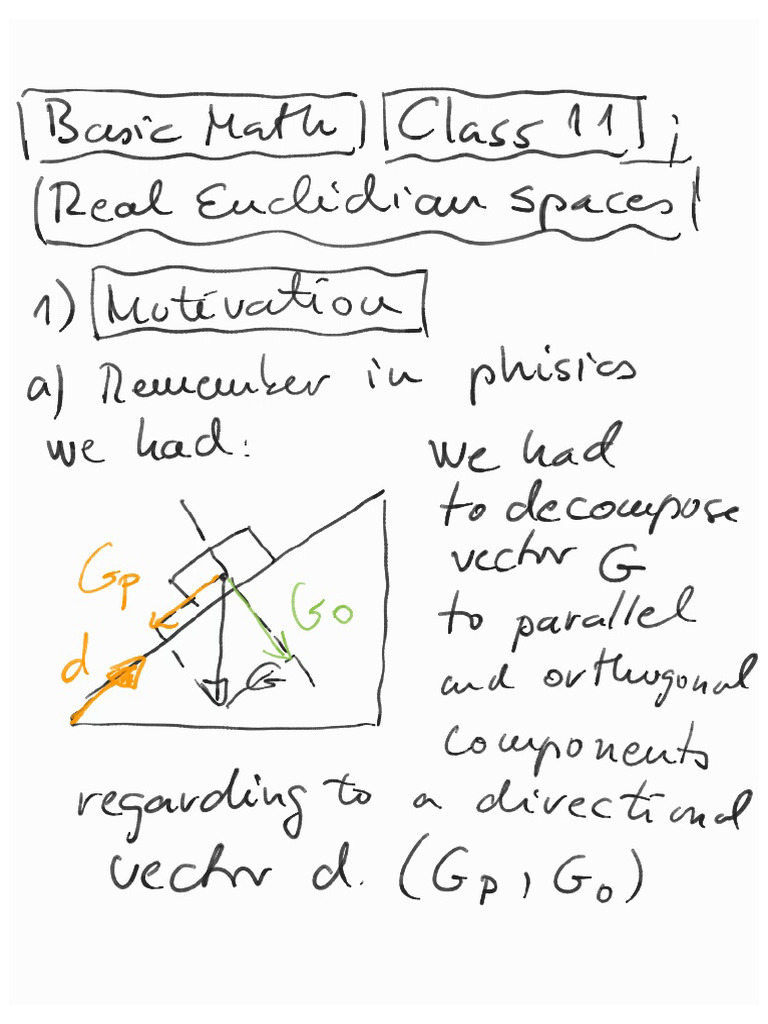 Basic Math Class 11;
Real Euclidian spaces
1) Motivation
a) Remember in phisics
we had:
we had
to decompose
vector G
to parallel
and orthogonal
components
Gp
Go
d
G
regarding to a directional
vector d. (Gp, Go)